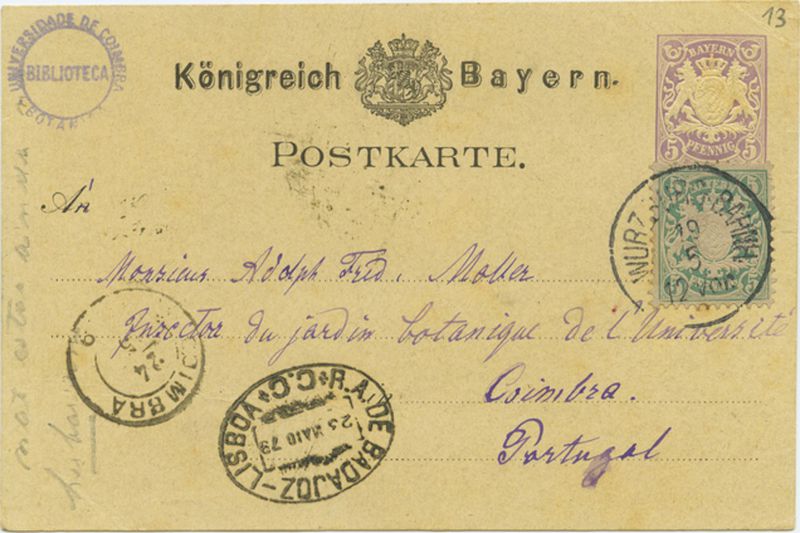 13
UNIVERSIDADE DE COIMBRA
BIBLIOTECA
Königreich Bayern.
BAYERN
5 5
PFENNIG
POSTKARTE.
An
WURZBURG BAHNH
19
5
12 VOR
Monsieur Adolph Fred. Moller
Inspector du jardin botanique de l'Université
Coimbra.
Portugal
COIMBRA
24
5
R.A. DE BADAJOZ-LISBOA C.C.
23 MAIO 79